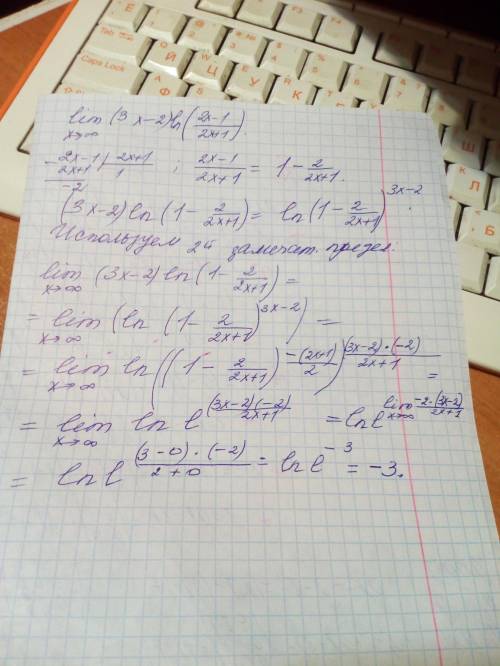 lim (3x-2) ln((2x-1)/(2x+1)).
x→∞
2x-1 | 2x+1 ; (2x-1)/(2x+1) = 1 - 2/(2x+1).
2x+1 | 1
-2
(3x-2) ln(1 - 2/(2x+1)) = ln(1 - 2/(2x+1))^(3x-2).
Используем 2й замечат. предел:
lim (3x-2) ln(1 - 2/(2x+1)) =
x→∞
= lim (ln (1 - 2/(2x+1))^(3x-2)) =
x→∞
= lim ln((1 - 2/(2x+1))^(-(2x+1)/2))^((3x-2)·(-2)/(2x+1)) =
x→∞
= lim ln e^((3x-2)(-2)/(2x+1)) = ln e^(lim x→∞ -2·(3x-2)/(2x+1))
x→∞
= ln e^((3-0)·(-2)/(2+0)) = ln e^(-3) = -3.